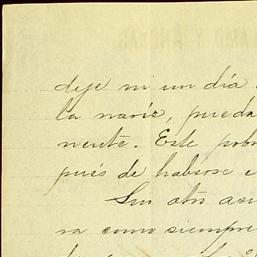 deje ni un día
la naríz, pueda
mente. Este pobr
pués de haberse e
Sin otro asu
ra como siempre